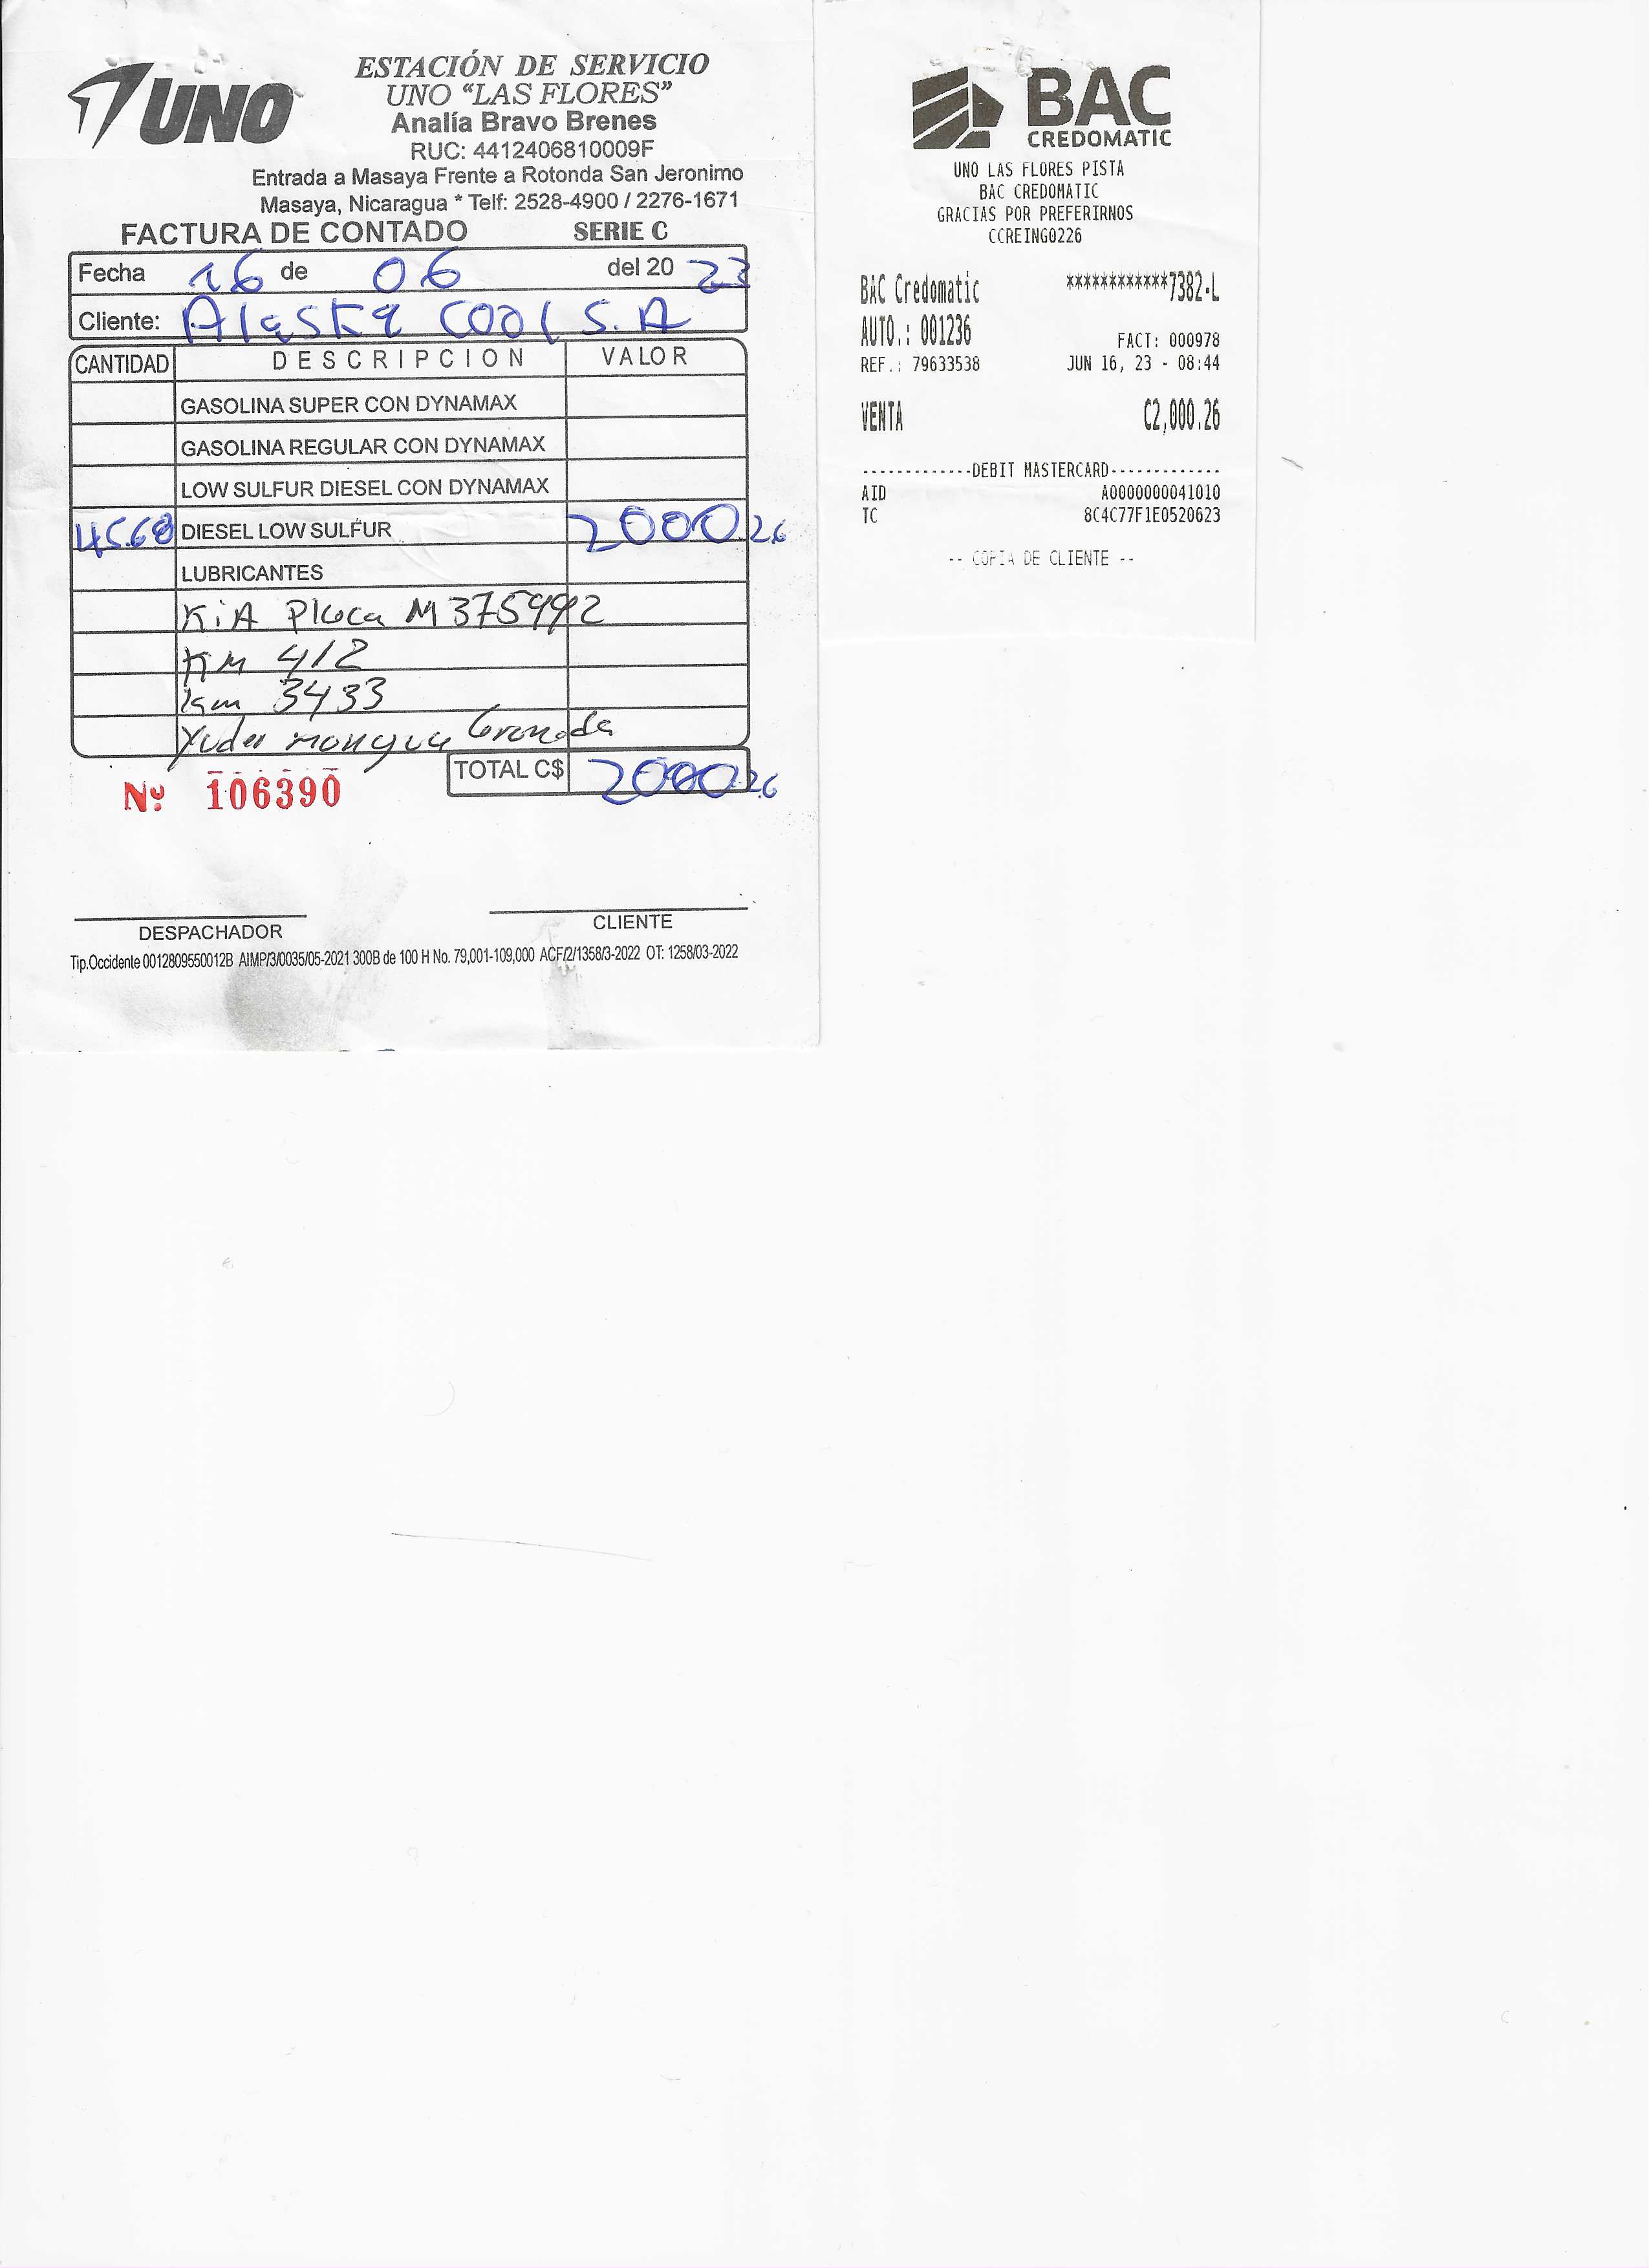 UNO
ESTACIÓN DE SERVICIO
UNO “LAS FLORES”
Analía Bravo Brenes
RUC: 4412406810009F
Entrada a Masaya Frente a Rotonda San Jeronimo
Masaya, Nicaragua * Telf: 2528-4900 / 2276-1671
FACTURA DE CONTADO SERIE C
Fecha 16 de 06 del 20 23
Cliente: Alaska Cool S.A
CANTIDAD DESCRIPCION VALOR
GASOLINA SUPER CON DYNAMAX
GASOLINA REGULAR CON DYNAMAX
LOW SULFUR DIESEL CON DYNAMAX
45.68 DIESEL LOW SULFUR 2000.26
LUBRICANTES
KiA Placa M375992
KM 412
km 3433
Granada
TOTAL C$ 2000.26
Nº 106390
DESPACHADOR
CLIENTE
Tip.Occidente 0012809550012B AIMP/3/0035/05-2021 300B de 100 H No. 79,001-109,000 ACF/2/1358/3-2022 OT: 1258/03-2022
BAC
CREDOMATIC
UNO LAS FLORES PISTA
BAC CREDOMATIC
GRACIAS POR PREFERIRNOS
CCREING0226
BAC Credomatic ************7382-L
AUTO.: 001236 FACT: 000978
REF.: 79633538 JUN 16, 23 - 08:44
VENTA C2,000.26
-------------DEBIT MASTERCARD-------------
AID A0000000041010
TC 8C4C77F1E0520623
-- COPIA DE CLIENTE --